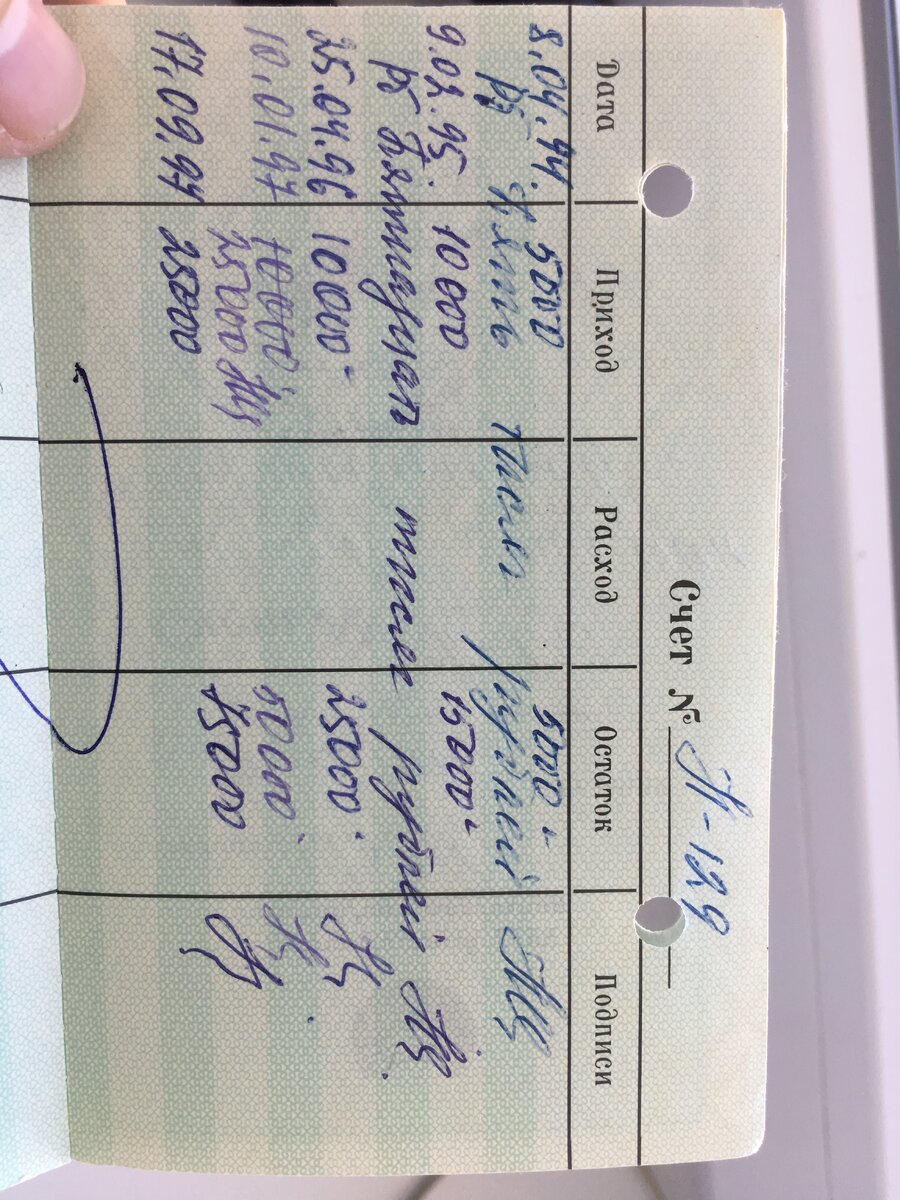 Счет № Я-129
Дата Приход Расход Остаток Подписи
8.04.94. 5000 5000
рб Пять тысяч рублей
9.02.95. 10000 15000
рб Пятнадцать тысяч рублей
25.04.96 10000 25000
10.01.97 10000 50000
25000
17.09.97 25000 75000